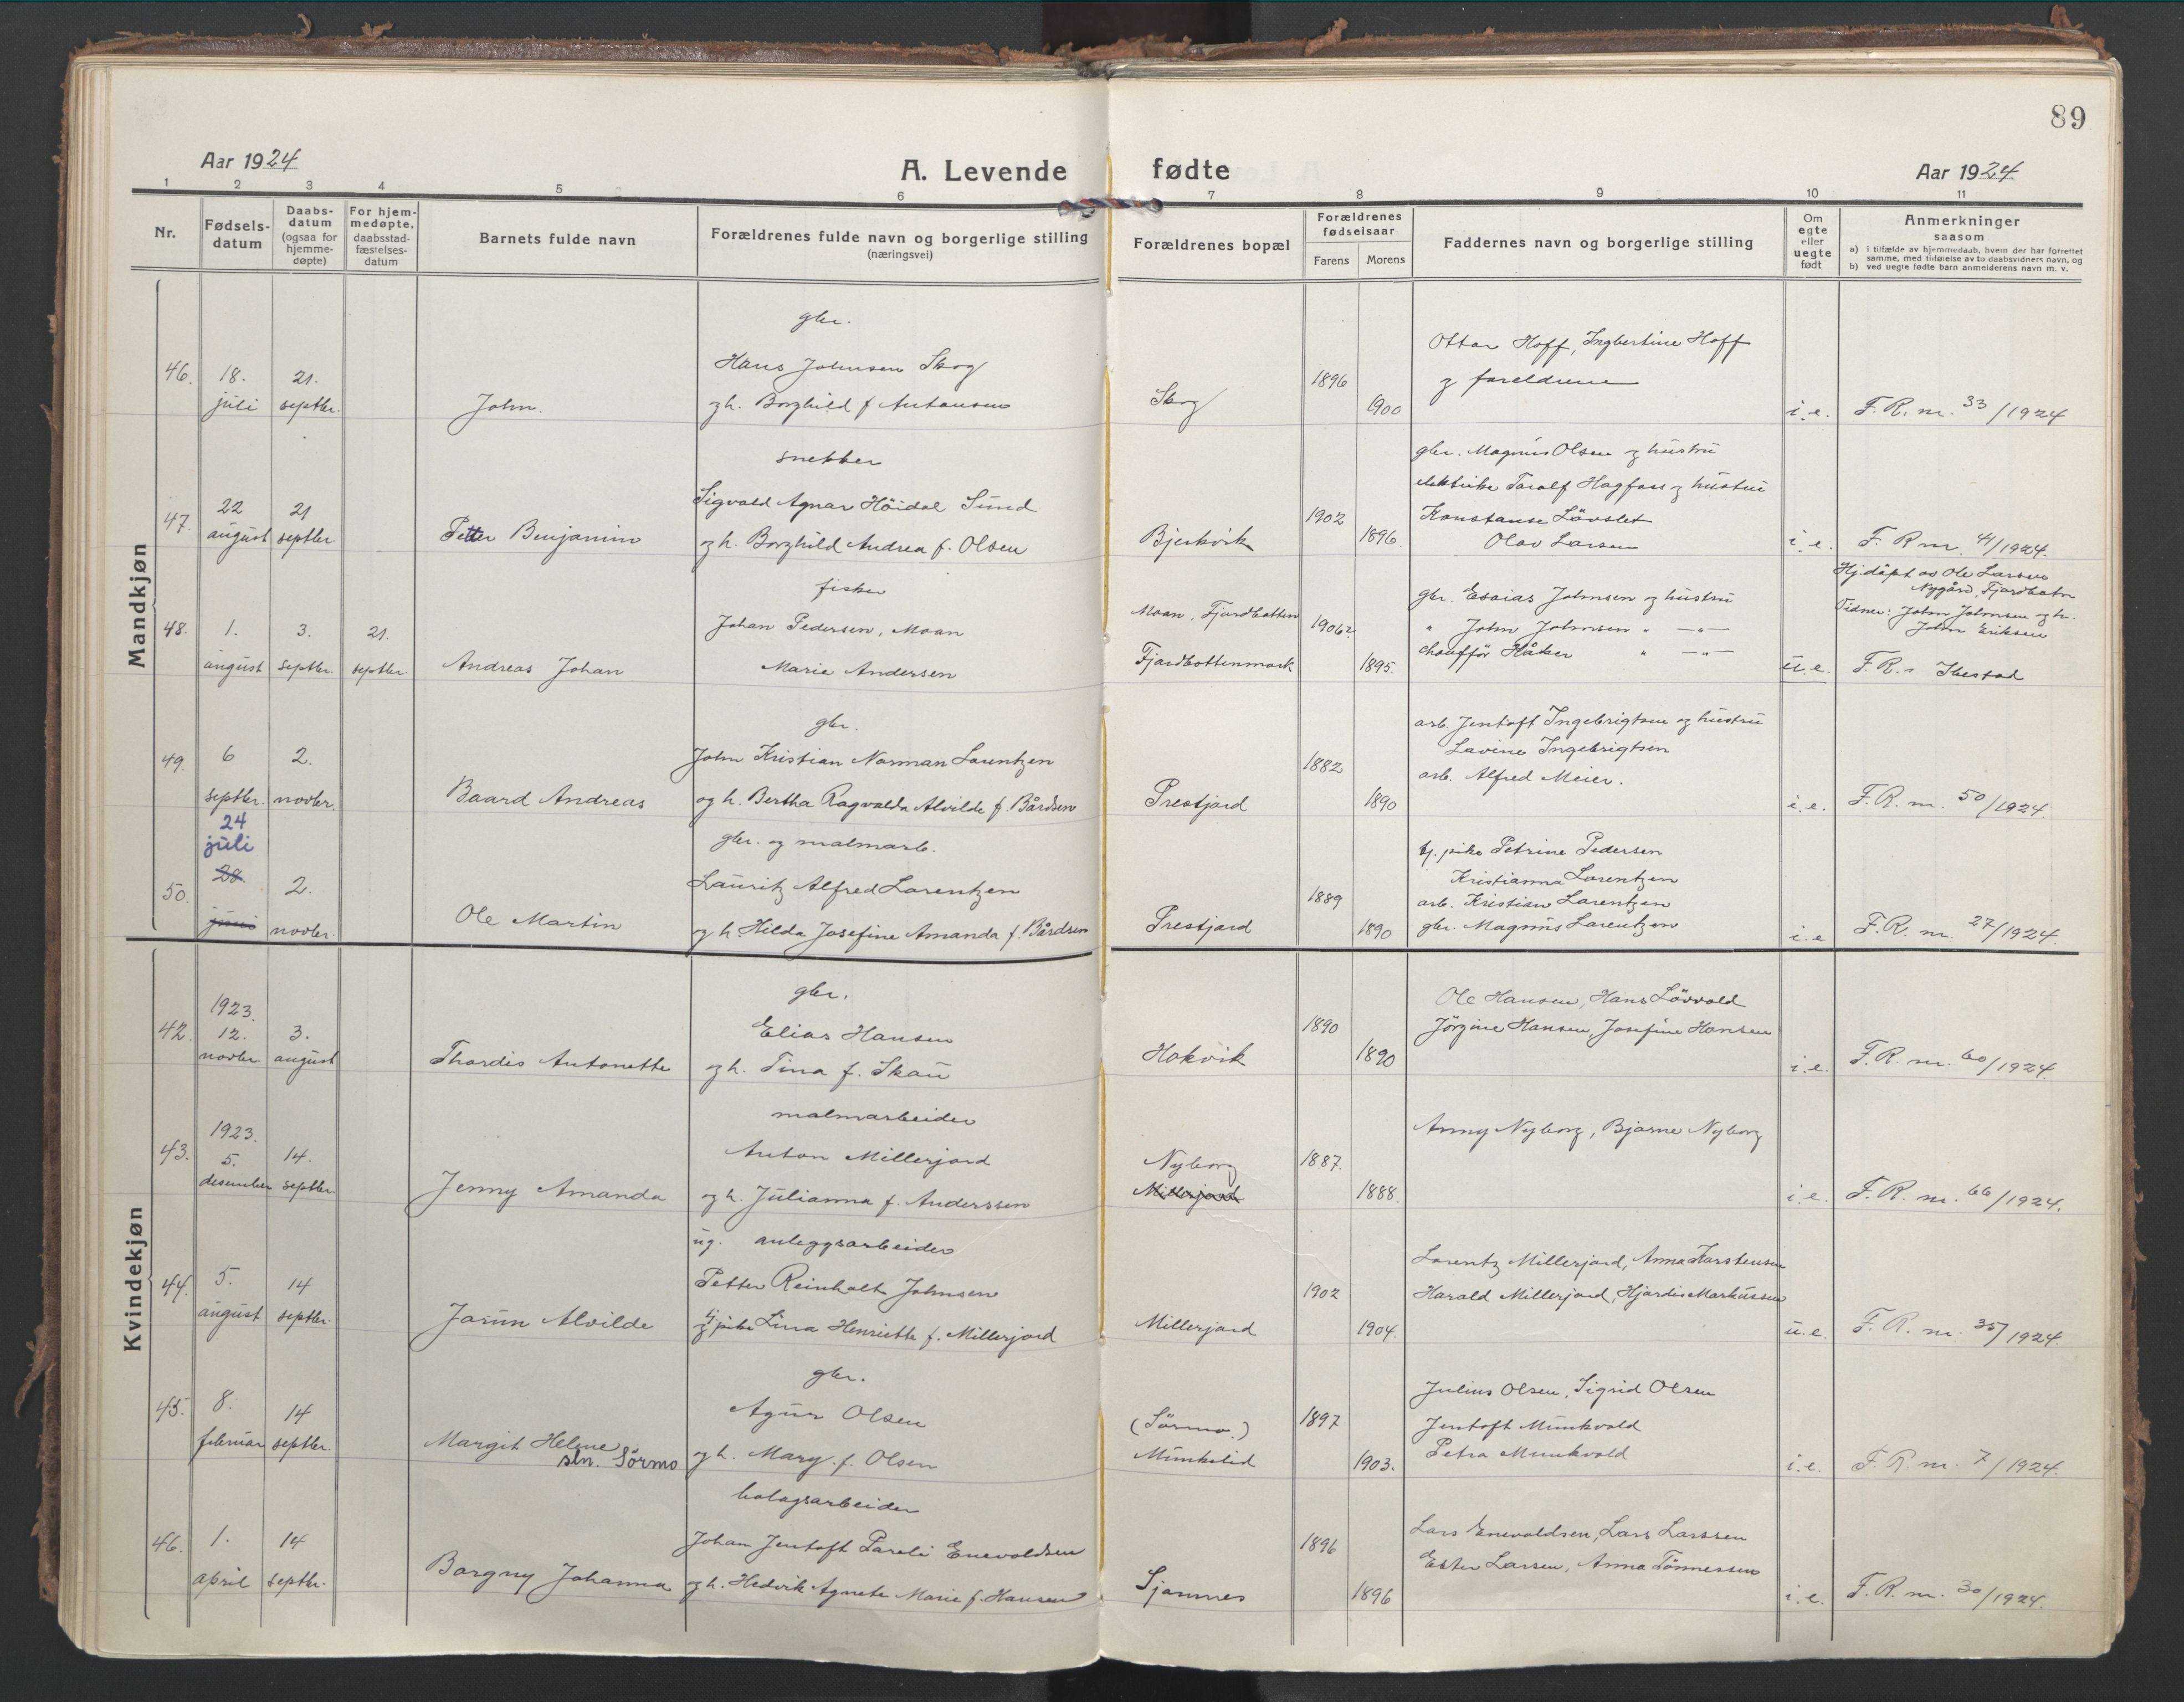 89
Aar 1924
A. Levende fødte
Aar 1924
1 2 3 4 5 6 7 8 9 10 11
Nr.
Fødsels-
datum
Daabs-
datum
(ogsaa for
hjemme-
døpte)
For hjem-
medøpte,
daabsstad-
fæstelses-
datum
Barnets fulde navn
Forældrenes fulde navn og borgerlige stilling
(næringsvei)
Forældrenes bopæl
Forældrenes
fødselsaar
Farens Morens
Faddernes navn og borgerlige stilling
Om
egte
eller
uegte
født
Anmerkninger
saasom
a) i tilfælde av hjemmedaab, hvem der har forrettet
samme, med tilføielse av to daabsvidners navn, og
b) ved uegte fødte barn anmelderens navn m. v.
Mandkjøn
46. 18. juli
21. septbr.
John.
gbr.
Hans Johnsen Skog
og h. Borghild f Antonsen
Skog
1896
1900
Ottar Hoff, Ingbertine Hoff
og foreldrene
i. e.
F. R. nr. 33/1924
47. 22 august
21 septbr
Petter Benjamin
snekker
Sigvald Agnar Höidal Sund
og h. Borghild Andrea f. Olsen
Bjerkvik
1902
1896.
gbr. Magnus Olsen og hustru
elektriker Toralf Hagfoss og hustru
Konstanse Lövslet
Olav Larsen
i. e.
F. R nr. 41/1924.
48. 1. august
3. septbr.
21. septbr.
Andreas Johan
fisker
Johan Pedersen, Moan
Marie Andersen
Moan, Fjordbotten
Fjordbottenmark
1906?
1895.
gbr. Esaias Johnsen og hustru
" John Johnsen " —"—
chaufför Håker " —"—
u. e.
Hj.döpt av Ole Larsen
Nygård, Fjordbotn
Vidner: John Johnsen og h.
John Eriksen
F. R. Ibestad
49. 6 septbr.
2. novbr.
Baard Andreas
gbr.
John Kristian Norman Lorentzen
og h. Bertha Ragvalda Alvilde f. Bårdsen
Prestjord
1882
1890
arb. Jentoft Ingebrigtsen og hustru
Lavine Ingebrigtsen
arb. Alfred Meier.
i. e.
F. R. nr. 50/1924.
50. 24 juli
28. juni
2. novbr.
Ole Martin
gbr. og malmarb.
Lauritz Alfred Lorentzen
og h. Hilda Josefine Amanda f. Bårdsen
Prestjord
1889
1890
tj. pike Petrine Pedersen
Kristianna Lorentzen
arb. Kristian Lorentzen
gbr. Magnus Lorentzen
i. e
F. R. nr. 27/1924.
Kvindekjøn
42. 1923.
12. novbr.
3. august
Thordis Antonette
gbr.
Elias Hansen
og h. Tina f. Skau
Hokvik
1890
1890
Ole Hansen, Hans Lövvold
Jörgine Hansen, Josefine Hansen
i. e.
F. R. nr. 60/1924.
43. 1923.
5. desember
14. septbr.
Jenny Amanda
malmarbeider
Anton Millerjord
og h. Julianna f. Anderssen
Nyborg
Millerjord
1887.
1888.
Anny Nyborg, Bjarne Nyborg
i. e.
F. R. nr. 66/1924.
44. 5. august
14 septbr.
Jorun Alvilde
ug. anleggsarbeider
Petter Reinholt Johnsen
og tj pike Lina Henriette f. Millerjord
Millerjord
1902
1904.
Lorentz Millerjord, Anna Karstensen
Harald Millerjord, Hjördis Markussen
u. e.
F. R. nr. 35/1924.
45. 8. februar
14 septbr.
Margit Helene
sln. Sörmo
gbr.
Agur Olsen
og h. Mary f. Olsen
(Sörmo.)
Munkelid
1897
1903.
Julius Olsen, Sigrid Olsen
Jentoft Munkvold
Petra Munkvold
i. e.
F. R. nr. 7/1924.
46. 1. april
14 septbr.
Borgny Johanna
bolagsarbeider
Johan Jentoft Pareli Enevoldsen
og h. Hedvik Agnete Marie f. Hansen
Sjonnes
1896
1896
Lars Enevoldsen, Lars Larssen
Ester Larsen, Anna Tönnessen
i. e.
F. R. nr. 30/1924.